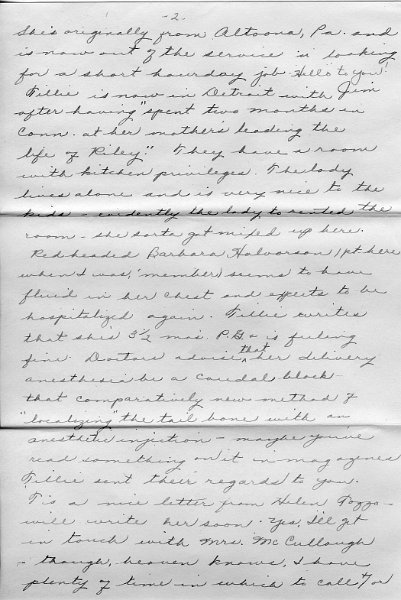 -2-
She's originally from Altoona, Pa. and
is now out of the service & looking
for a short hour day job. Hello to you!
Tillie is now in Detroit with Jim
after having "spent two months in
Conn. at her mothers leading the
life of Riley." They have a room
with kitchen privileges. The lady
lives alone and is very nice to the
kids - evidently the lady to rented the
room - she sorta got mixed up here.
Redheaded Barbara Halvorson (pt here
when I was, 'member) seems to have
fluid in her chest and expects to be
hospitalized again. Tillie writes
that she's 3½ mos. P.G. & is feeling
fine. Doctors advise that her delivery
anesthesia be a caudal block -
that comparatively new method of
"localizing" the tail bone with an
anesthetic injection - maybe you've
read something on it in magazines
Tillie sent their regards to you.
'Tis a nice letter from Helen
will write her soon. Yes, I'll get
in touch with Mrs. McCullough
- though, heaven knows, I have
plenty of time in which to call &/or